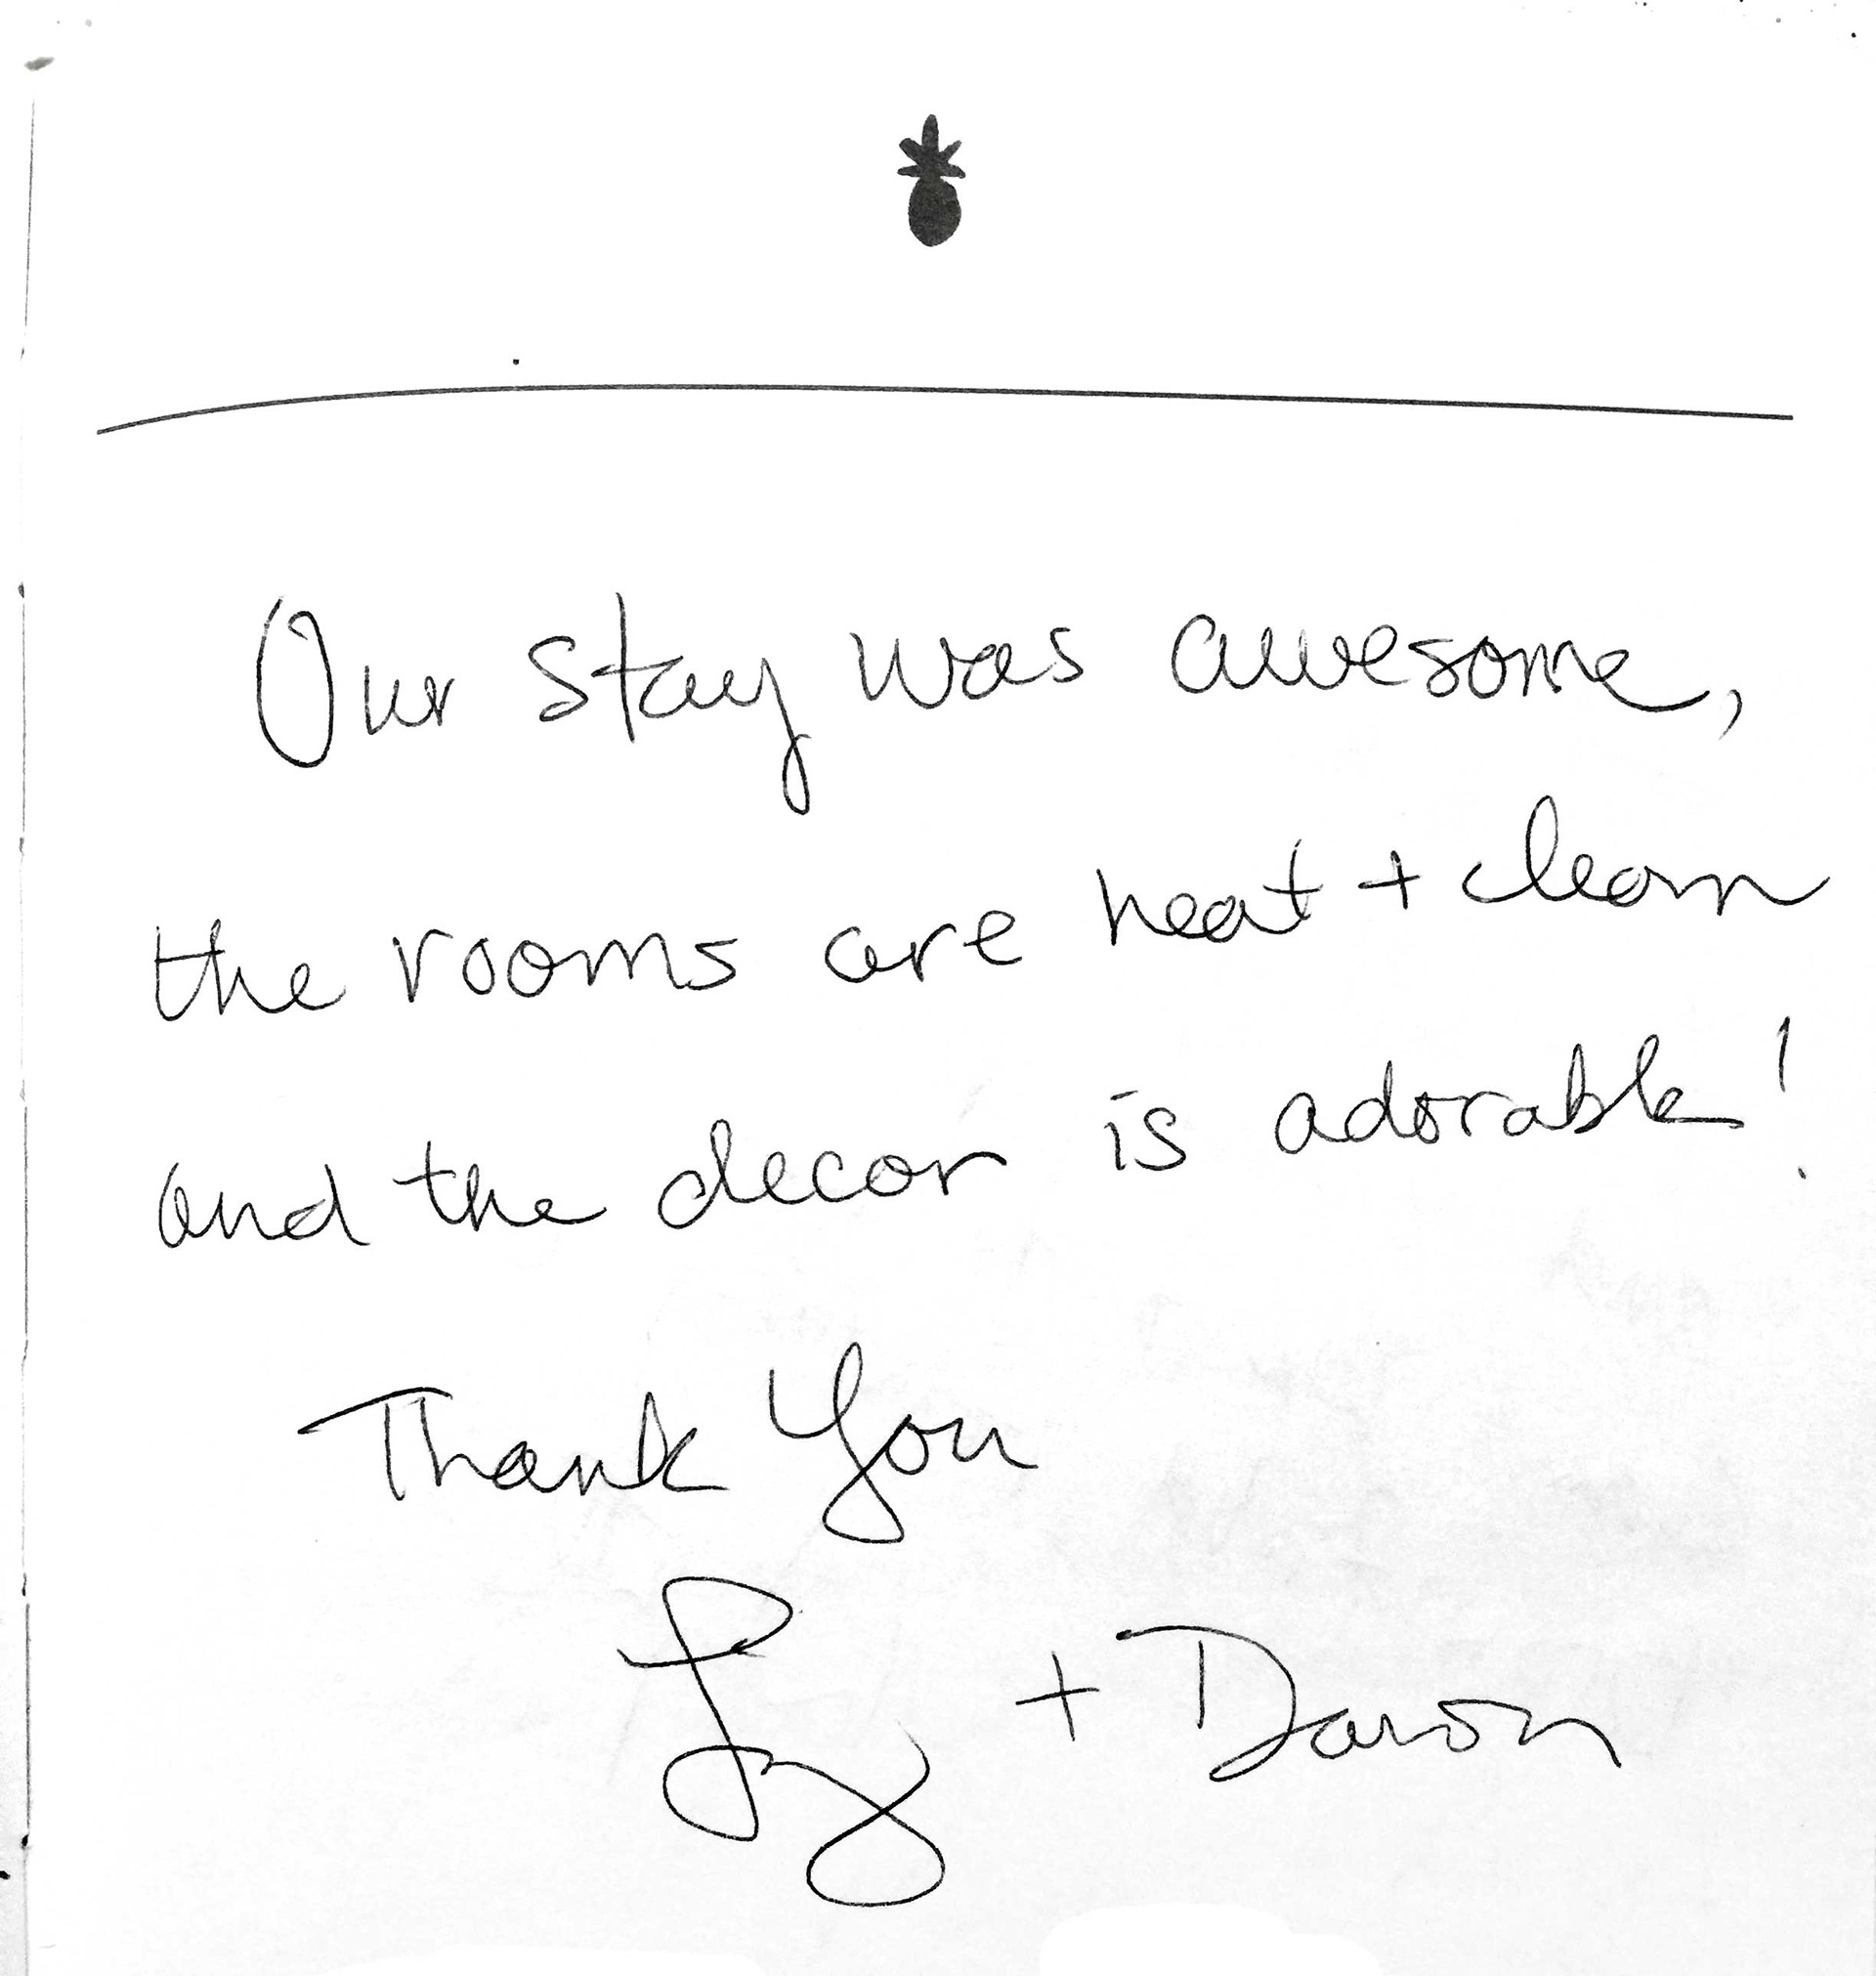 Our stay was awesome,
the rooms are neat + clean
and the decor is adorable!
Thank You
+